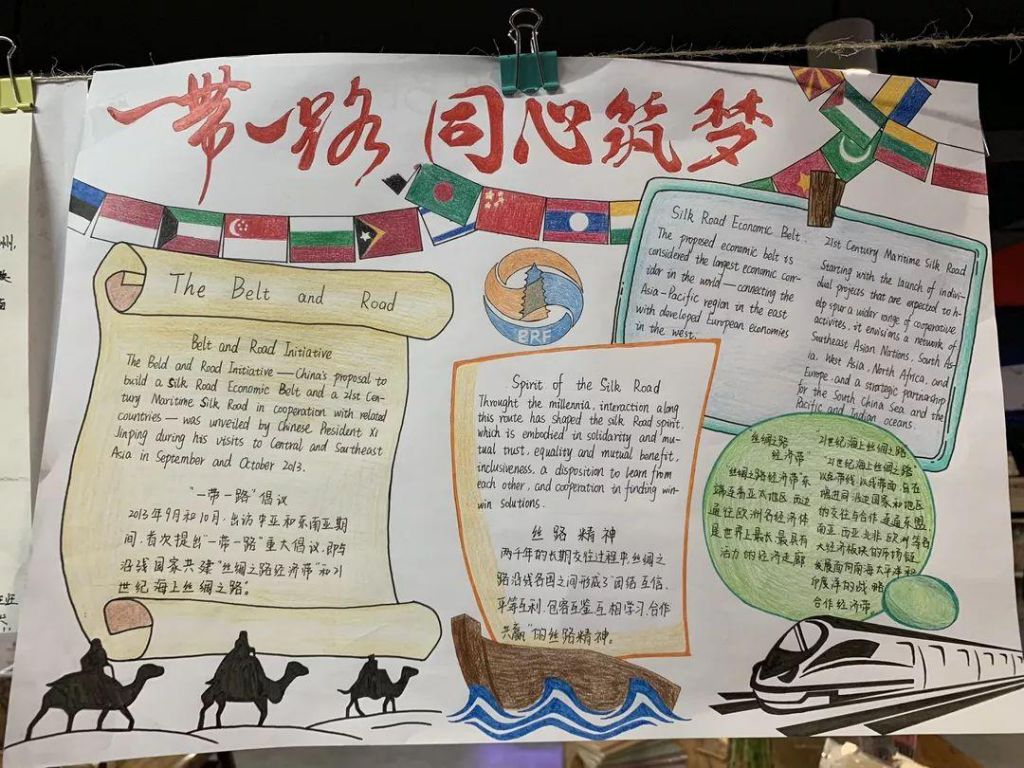 一带一路 同心筑梦
The Belt and Road
Belt and Road Initiative
The Beld and Road Initiative — China's proposal to
build a Silk Road Economic Belt and a 21st Cen-
tury Maritime Silk Road in cooperation with related
countries — was unveiled by Chinese President Xi
Jinping during his visits to Central and Southeast
Asia in September and October 2013.
"一带一路"倡议
2013年9月和10月,出访中亚和东南亚期
间,首次提出"一带一路"重大倡议,即与
沿线国家共建"丝绸之路经济带"和21
世纪海上丝绸之路"。
BRF
Spirit of the Silk Road
Throught the millennia, interaction along
this route has shaped the silk Road spirit,
which is embodied in solidarity and mu-
tual trust, equality and mutual benefit,
inclusiveness, a disposition to learn from
each other, and cooperation in finding win-
win solutions.
丝路精神
两千年的长期交往过程中,丝绸之
路沿线各国之间形成了"团结互信,
平等互利,包容互鉴,互相学习,合作
共赢"的丝路精神。
Silk Road Economic Belt.
The proposed economic belt is
considered the largest economic corr-
idor in the world — connecting the
Asia-Pacific region in the east
with developed European economies
in the west.
21st Century Maritime Silk Road
Starting with the launch of indivi-
dual projects that are expected to h-
elp spur a wider range of cooperative
activites, it envisions a network of
Southeast Asian Nations, South As-
ia, West Asia, North Africa, and
Europe, and a strategic partnership
for the South China Sea and the
Pacific and Indian oceans.
丝绸之路
经济带
"丝绸之路经济带"东
端连着亚太地区,西边
通往欧洲各经济体
是世界上最长,最具有
活力的经济走廊
"21世纪海上丝绸之路"
"21世纪海上丝绸之路"
以点带线,以线带面,旨在
增进同沿边国家和地区
的交往与合作,连通东盟
南亚,西亚,北非,欧洲等各
大经济板块的市场链
发展面向南海,太平洋和
印度洋的战略
合作经济带